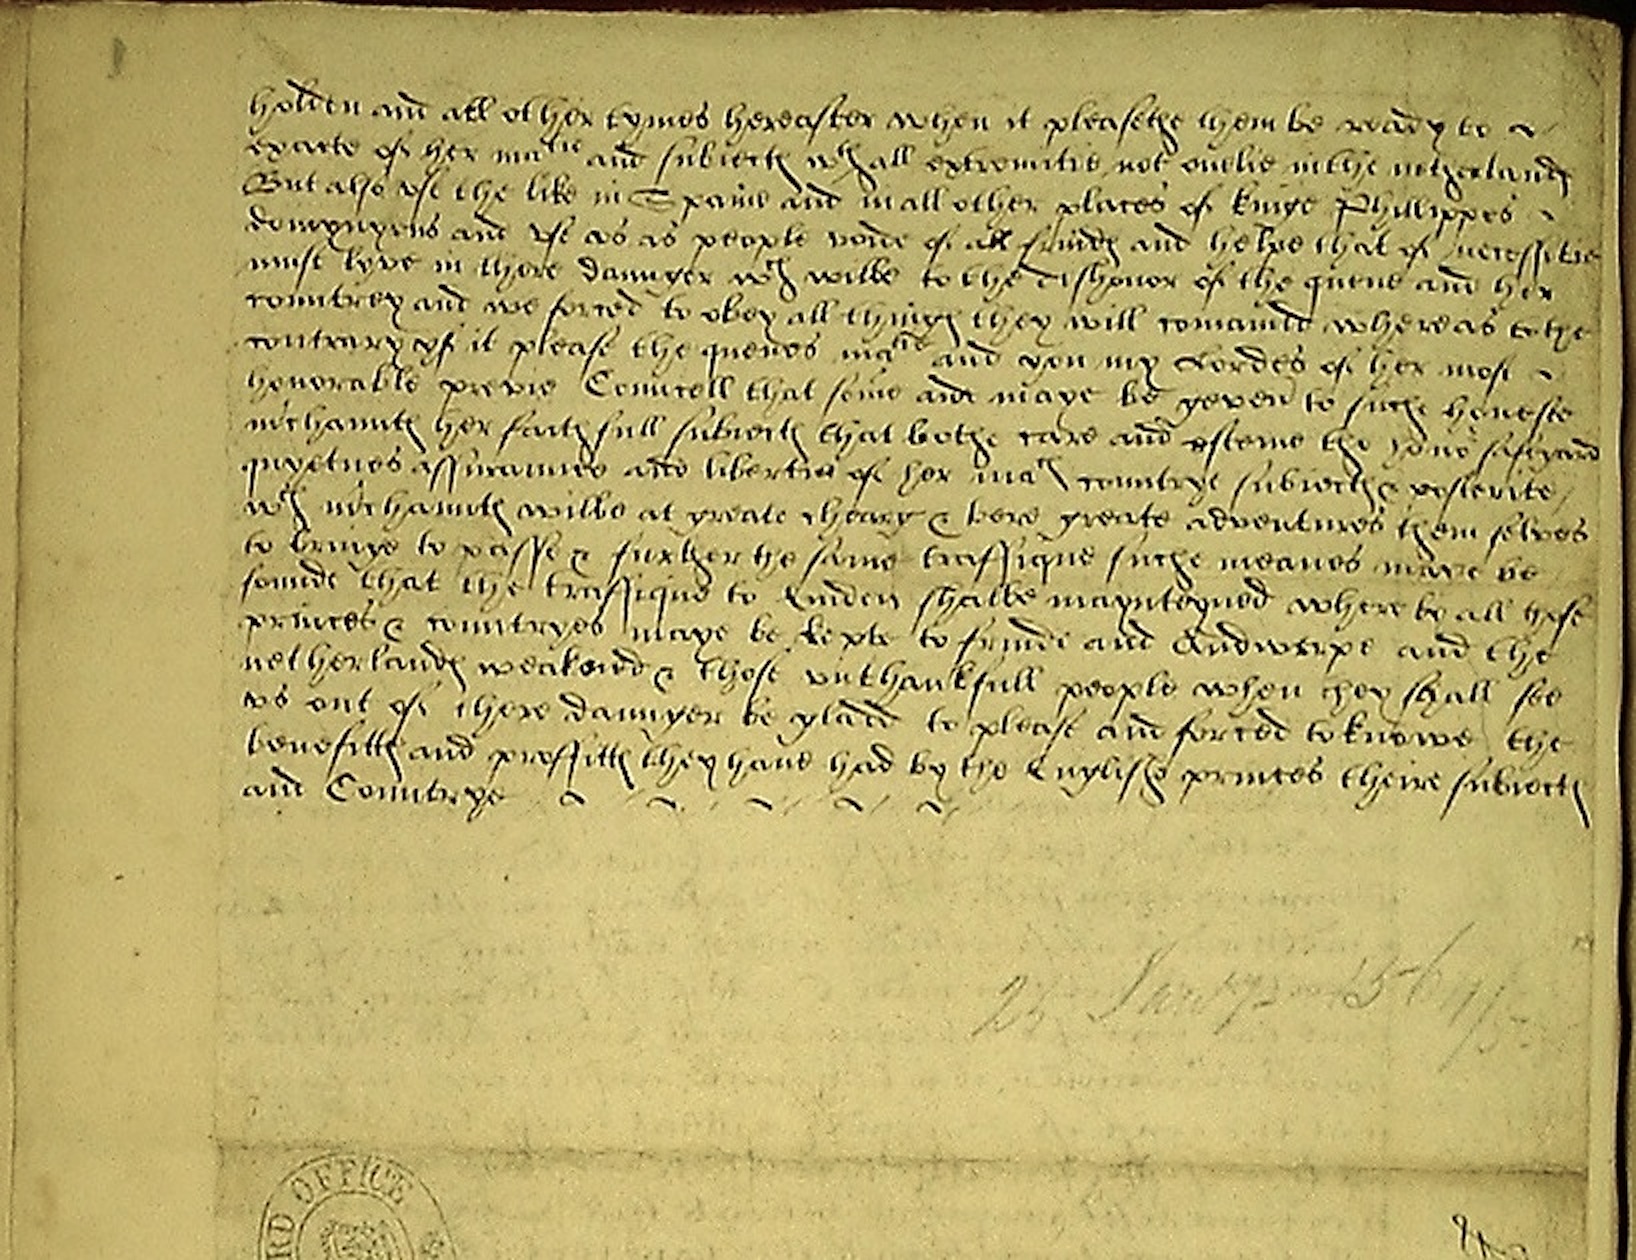 holden and all other tymes hereafter when it pleasethe them be ready to
exacte of her matie and subiectes wth all extremitie not onelie in the netherlandes
But also vse the like in Spaine and in all other places of kinge Phillippes
domynyons and vse vs as people voide of all frindes and helpe that of necessitie
must lyve in there daunger wch wilbe to the dishonor of the quene and her
countrey and we forced to obey all thinges they will comaunde whereas to the
contrary yf it please the quenes matie and you my Lordes of her most
honorable previe Councell that some aide maye be geven to suche honeste
mrchauntes her faithfull subiectes that bothe care and esteme the honor safgard
quyetnes assuraunce and liberties of her mates countrye subiectes & posterite
wch mrchauntes wilbe at greate charg & bere greate adventures them selves
to bringe to passe & further the same traffique suche meanes maye be
founde that the traffique to Emden shalbe maynteyned whereby all these
princes & countryes maye be kepte to frinde and Andwerpe and the
netherlandes weakened & those vnthankfull people when they shall see
vs out of there daunger be gladd to please and forced to knowe the
benefittes and proffittes they haue had by the Englishe princes theire subiectes
and Countrye
25 Janry 156
RD OFFICE